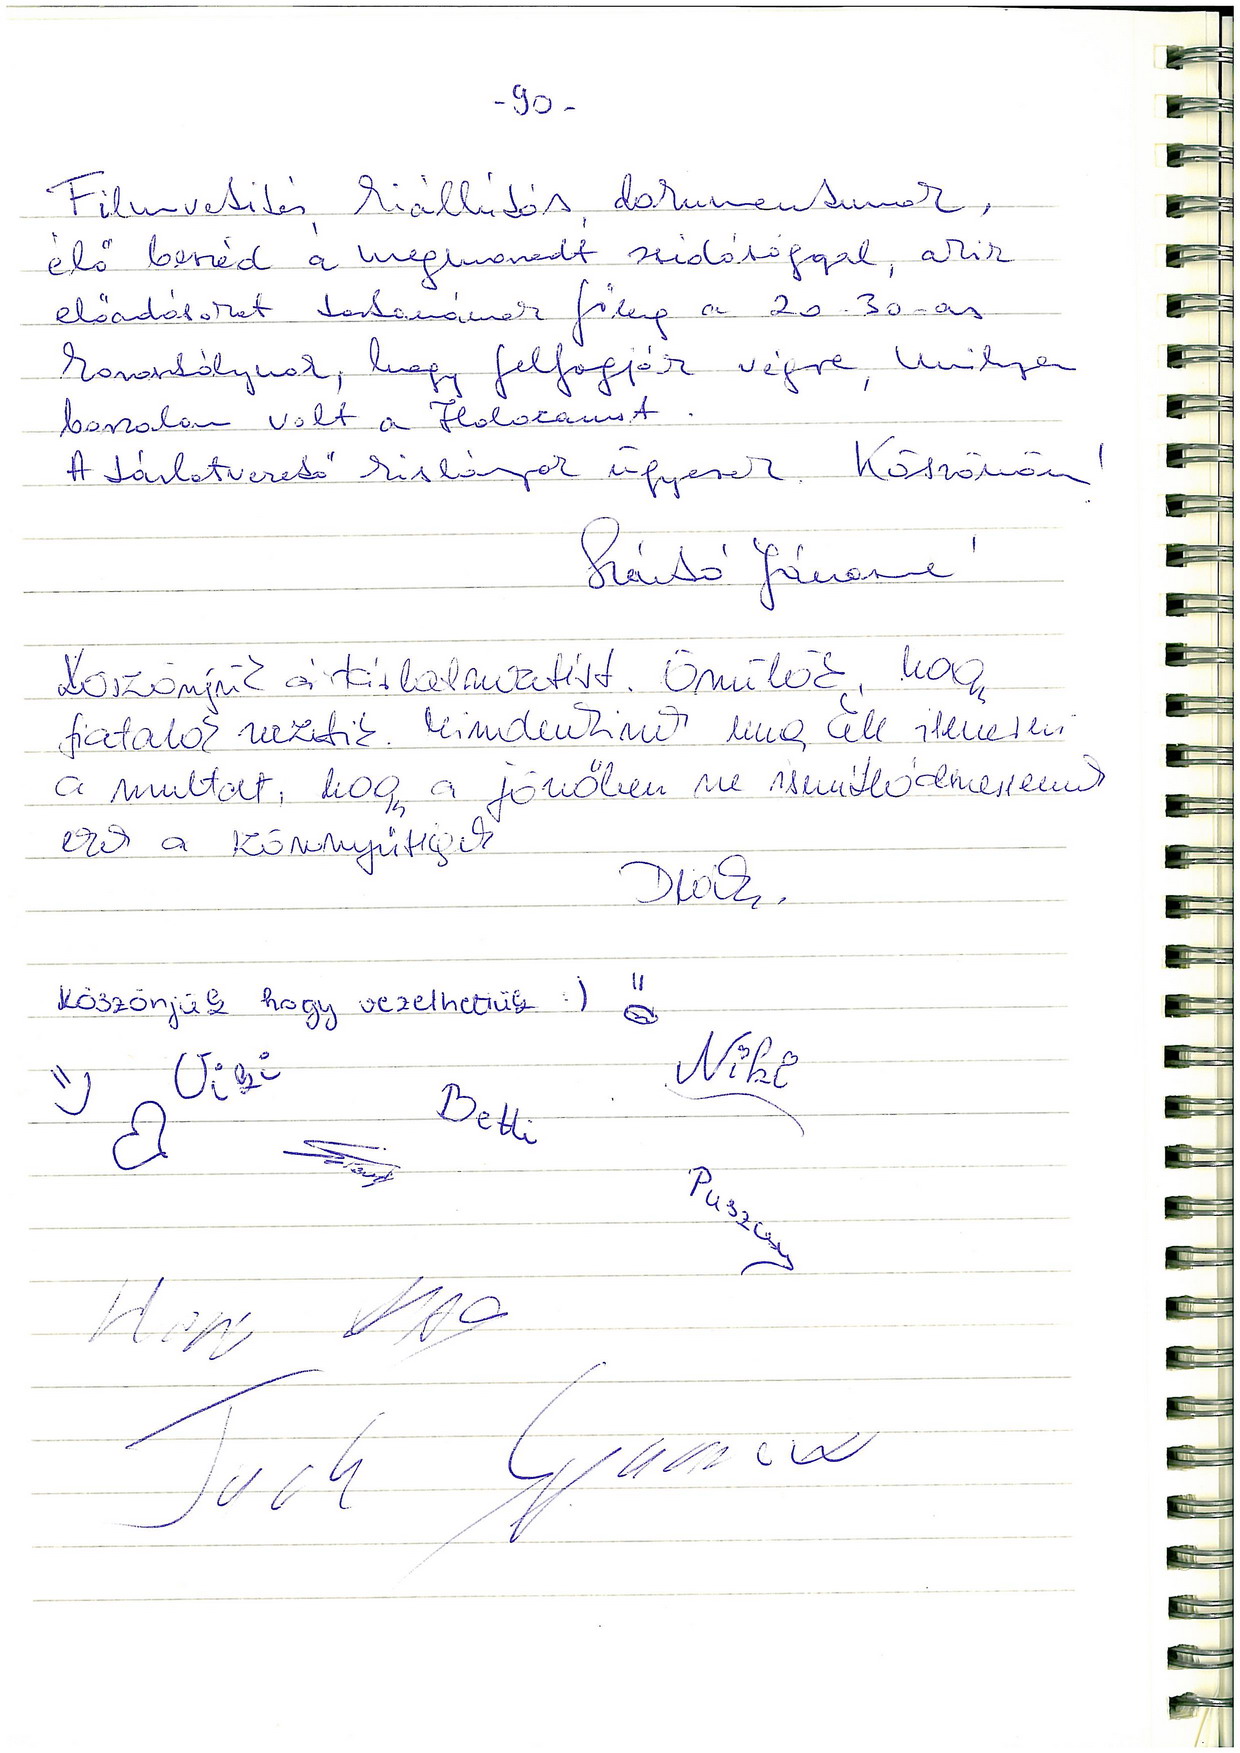 -90-
Filmvetítés, kiállítás, dokumentumok,
élő beszéd a megmaradt zsidósággal, akik
előadásokat tartanának főleg a 20-30-as
korosztálynak, hogy felfogják végre, milyen
borzalom volt a Holocaust.
A tárlatvezető kislányok ügyesek. Köszönöm!
Szántó Jánosné
Köszönjük a tárlatvezetést. Örülök, hogy
fiatalok vezetik. Mindenkinek meg kell ismerni
a multat, hogy a jövőben ne ismétlődhessenek
ezek a szörnyűségek
Köszönjük hogy vezethettünk :)
Viki
Niki
Betti
Puszcsy